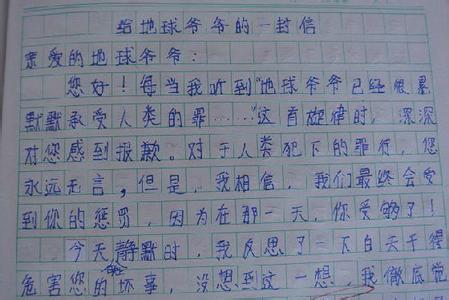 给地球爷爷的一封信
亲爱的地球爷爷：
您好！每当我听到“地球爷爷已经很累
默默承受人类的罪……”这首旋律时，深深
对您感到报歉。对于人类犯下的罪行，您
永远无言，但是，我相信，我们最终会受
到你的惩罚，因为在那一天，你爱够了！
今天静默时，我反思了一下白天干得
危害您的坏事，没想到这一想，我彻底觉